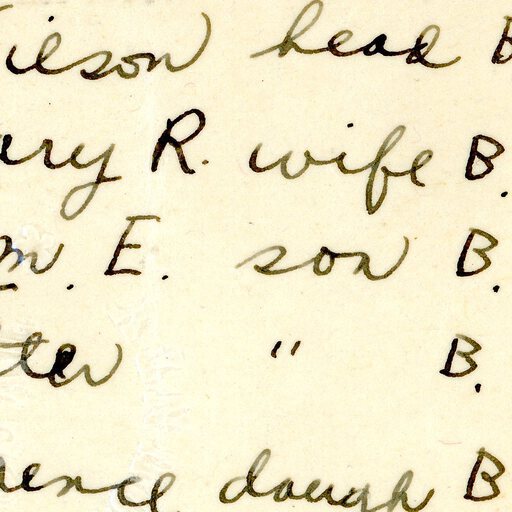 ilson head B
ary R. wife B.
m. E. son B.
ter " B.
ence daugh B